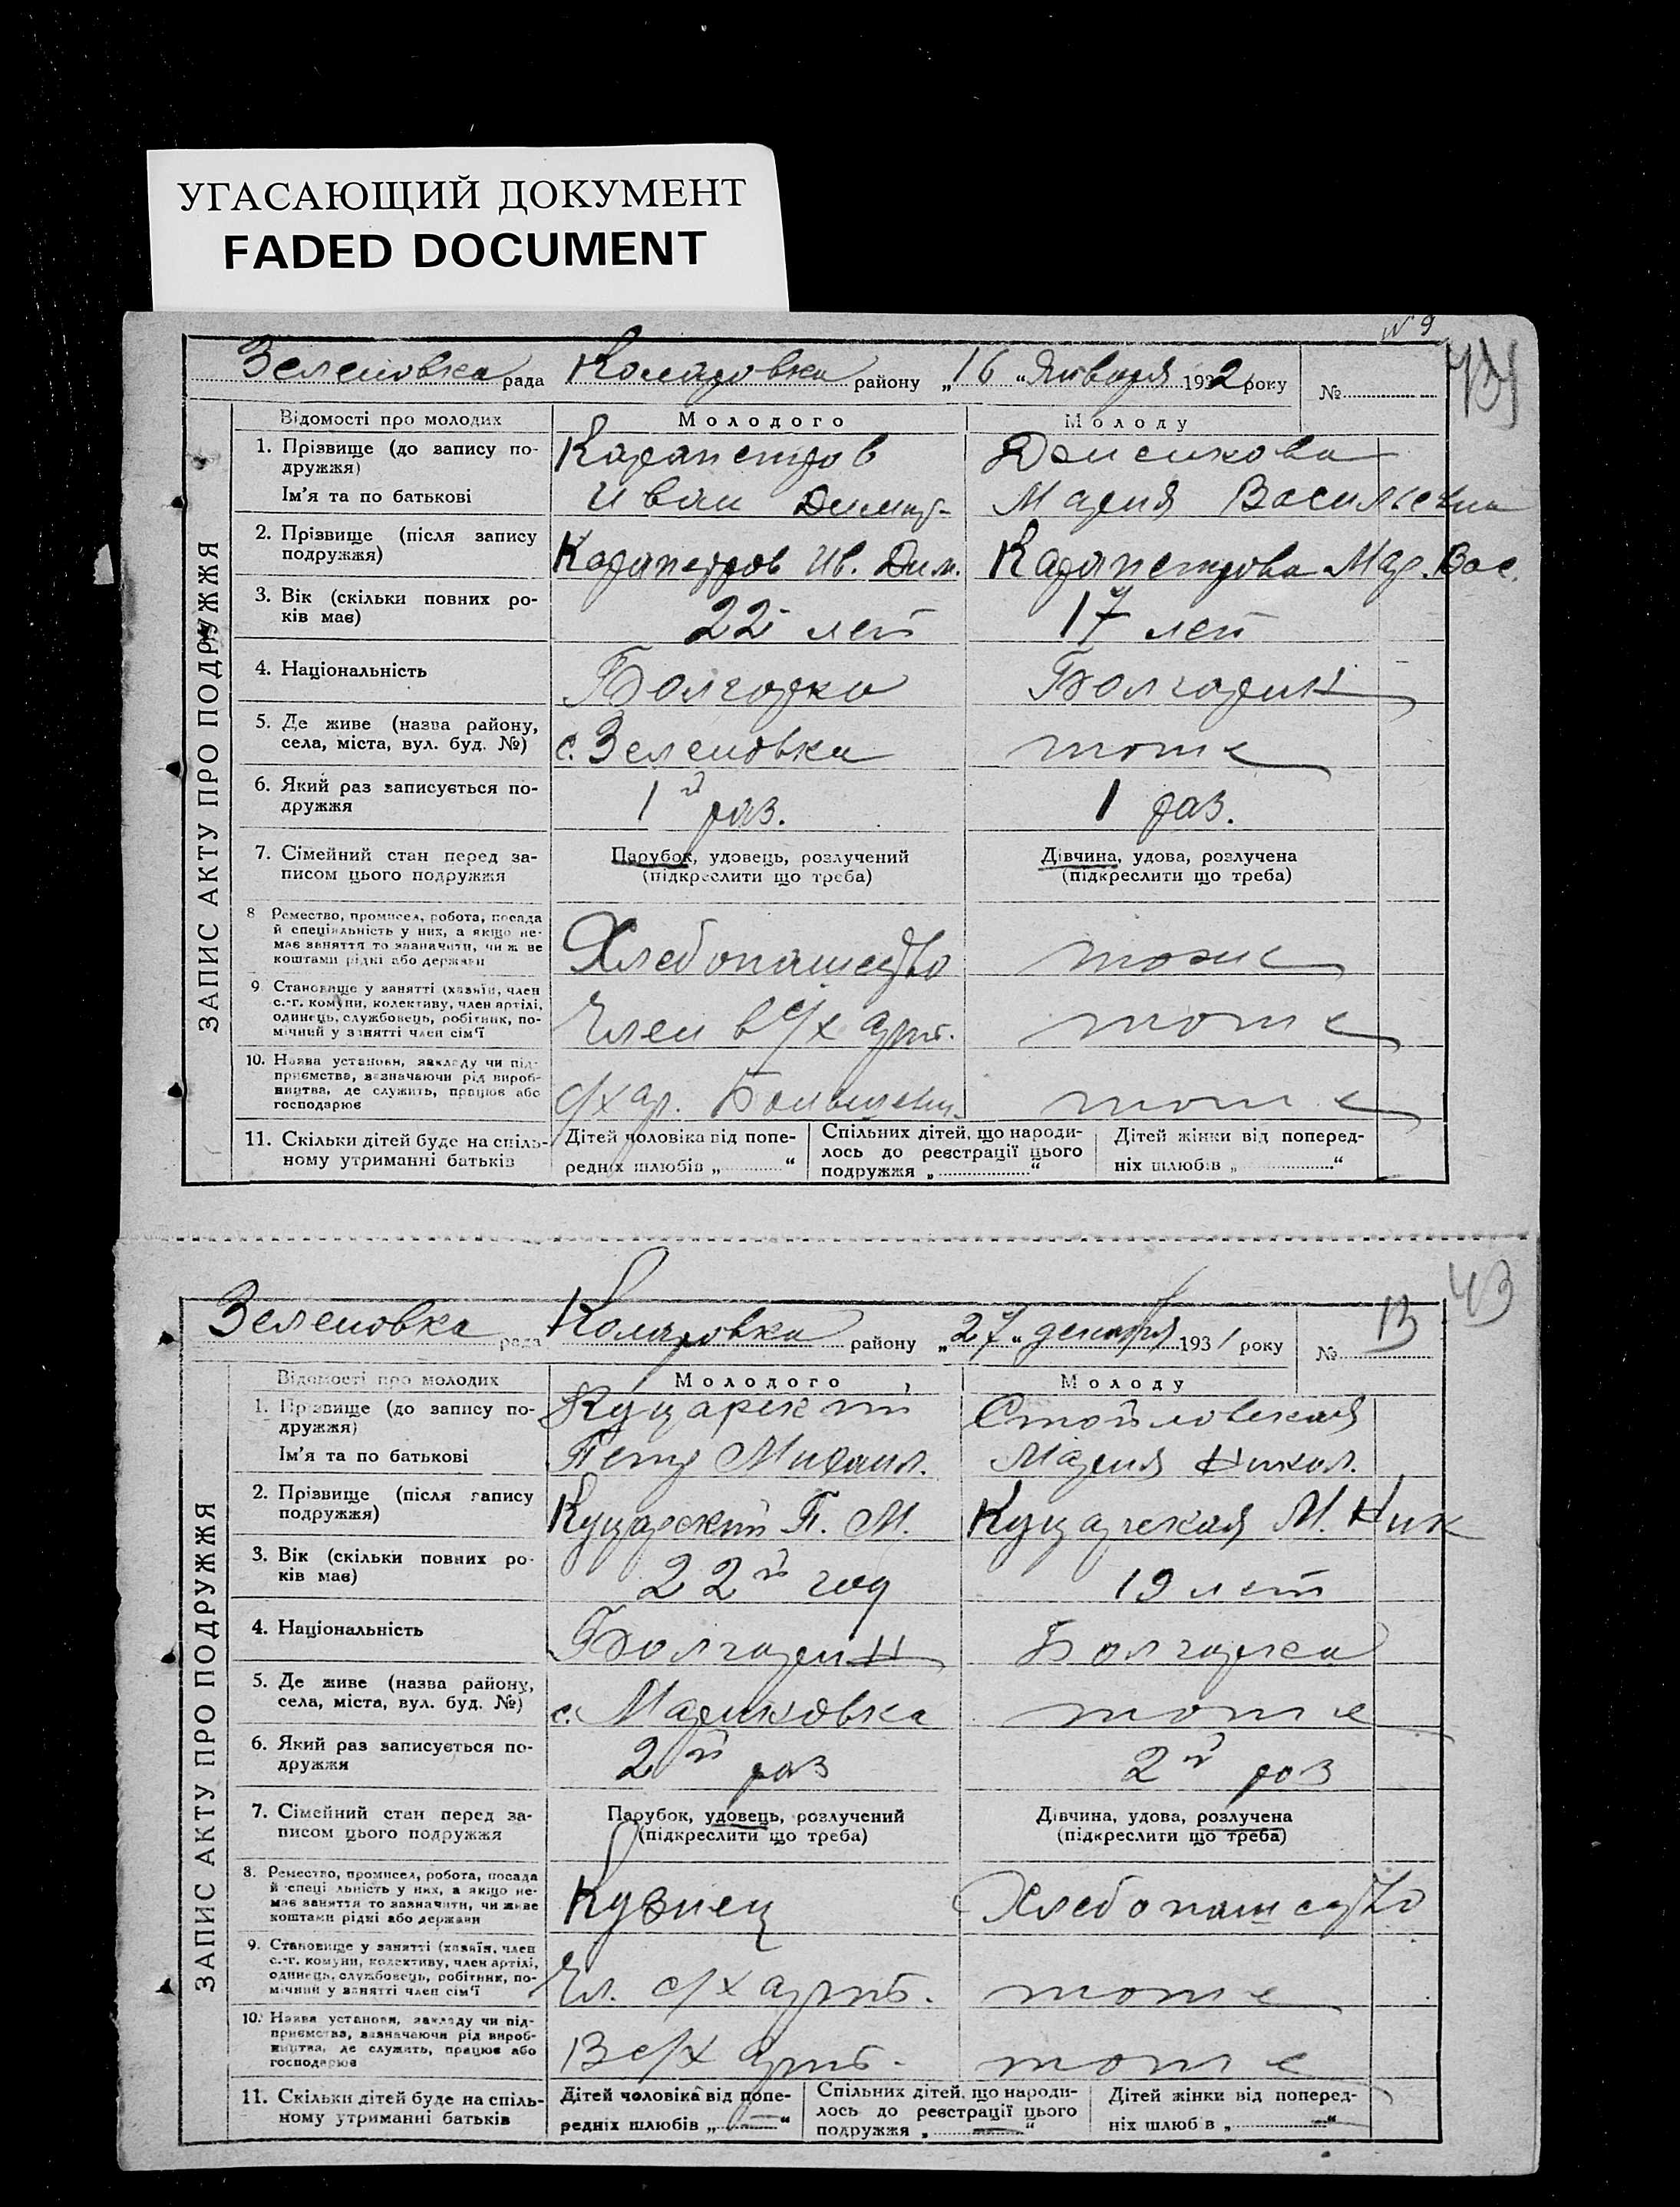 УГАСАЮЩИЙ ДОКУМЕНТ
FADED DOCUMENT
№ 9
Зеленовка рада Коларовка району „16“ Января 1932 року №
ЗАПИС АКТУ ПРО ПОДРУЖЖЯ
Відомості про молодих Молодого Молоду
1. Прізвище (до запису по-
дружжя)
Карапетров
Ім'я та по батькові
Иван Димит-
Мария Васильевна
2. Прізвище (після запису
подружжя)
Карапетров Ив. Дим.
Карапетрова Мар. Вас.
3. Вік (скільки повних ро-
ків має)
22 лет
17 лет
4. Національність
Болгарка
Болгарин
5. Де живе (назва району,
села, міста, вул. буд. №)
с. Зеленовка
тоже
6. Який раз записується по-
дружжя
1й раз.
1 раз.
7. Сімейний стан перед за-
писом цього подружжя
Парубок, удовець, розлучений
(підкреслити що треба)
Дівчина, удова, розлучена
(підкреслити що треба)
8 Ремество, промисел, робота, посада
й спеціяльність у них, а якщо не-
має заняття то зазначити, чи ж ве
коштами рідні або держави
Хлебопашество
тоже
9. Становище у занятті (хазяїн, член
с.-г. комуни, колективу, член артілі,
одинець, службовець, робітник, по-
мічний у занятті член сім'ї
Член в с/х арт.
тоже
10. Назва установи, закладу чи під-
приємства, зазначаючи рід вироб-
ництва, де служить, працює або
господарює
с/х ар. Большеви-
тоже
11. Скільки дітей буде на спіль-
ному утриманні батьків
Дітей чоловіка від попе-
редніх шлюбів „ “
Спільних дітей, що народи-
лось до реєстрації цього
подружжя „ “
Дітей жінки від поперед-
ніх шлюбів „ “
43
Зеленовка рада Коларовка району „27“ декабря 1931 року № 13
ЗАПИС АКТУ ПРО ПОДРУЖЖЯ
Відомості про молодих Молодого Молоду
1. Прізвище (до запису по-
дружжя)
Куцарский
Стойловская
Ім'я та по батькові
Петр Михаил.
Мария Никол.
2. Прізвище (після запису
подружжя)
Куцарский П. М.
Куцарская М. Ник
3. Вік (скільки повних ро-
ків має)
22й год
19 лет
4. Національність
Болгарин
Болгарка
5. Де живе (назва району,
села, міста, вул. буд. №)
с. Мариновка
тоже
6. Який раз записується по-
дружжя
2й раз
2й раз
7. Сімейний стан перед за-
писом цього подружжя
Парубок, удовець, розлучений
(підкреслити що треба)
Дівчина, удова, розлучена
(підкреслити що треба)
8. Ремество, промисел, робота, посада
й спеці льність у них, а якщо не-
має заняття то зазначити, чи живе
коштами рідні або держави
Кузнец
Хлебопашество
9. Становище у занятті (хазяїн, член
с.-г. комуни, колективу, член артілі,
одинець, службовець, робітник, по-
мічний у занятті член сім'ї
Чл. с/х арт.
тоже
10. Назва установи, закладу чи під-
приємства, зазначаючи рід вироб-
ництва, де служить, працює або
господарює
В с/х арт.
тоже
11. Скільки дітей буде на спіль-
ному утриманні батьків
Дітей чоловіка від попе-
редніх шлюбів „—“
Спільних дітей, що народи-
лось до реєстрації цього
подружжя „—“
Дітей жінки від поперед-
ніх шлюб в „—“